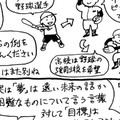 野球選手
の例を
んください
はまた別ね
高校は野球の
強豪校を希望
は「夢」は遠い未来の話か
困難なものについて言う言葉
対して「目標」は